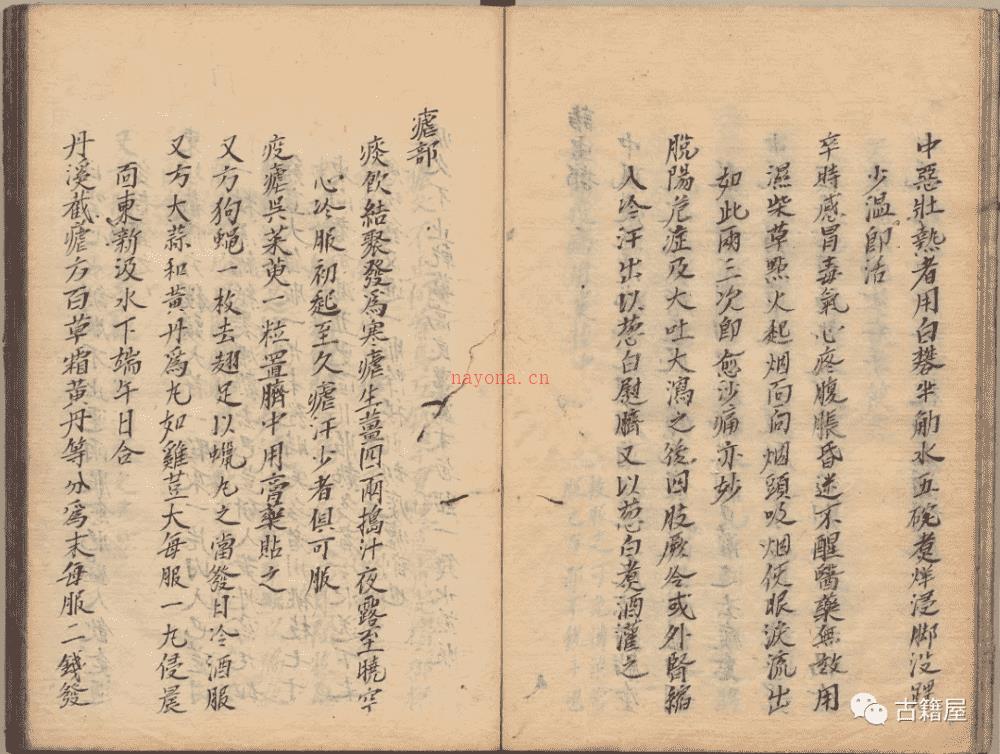 中惡壯熱者用白礬半觔水五碗煮烊浸脚没踝
少温即活
卒時感冒毒氣心疼腹脹昏迷不醒醫藥無效用
濕柴草㸃火起烟面向烟頭吸烟使眼淚流出
如此兩三次即愈沙痛亦妙
脱陽危症及大吐大瀉之後四肢厥冷或外腎縮
入冷汗出以葱白慰臍又以葱白煮酒灌之
瘧部
痰飲結聚發為寒瘧生薑四兩搗汁夜露至曉空
心冷服初起至久瘧汗少者俱可服
疫瘧吳茱萸一粒置臍中用膏藥貼之
又方狗蝇一枚去翅足以蠟丸之當發日冷酒服
又方大蒜和黄丹為丸如雞荳大每服一丸侵晨
面東新汲水下端午日合
丹溪截瘧方百草霜黄丹等分為末每服二錢發
nayona.cn
古籍屋